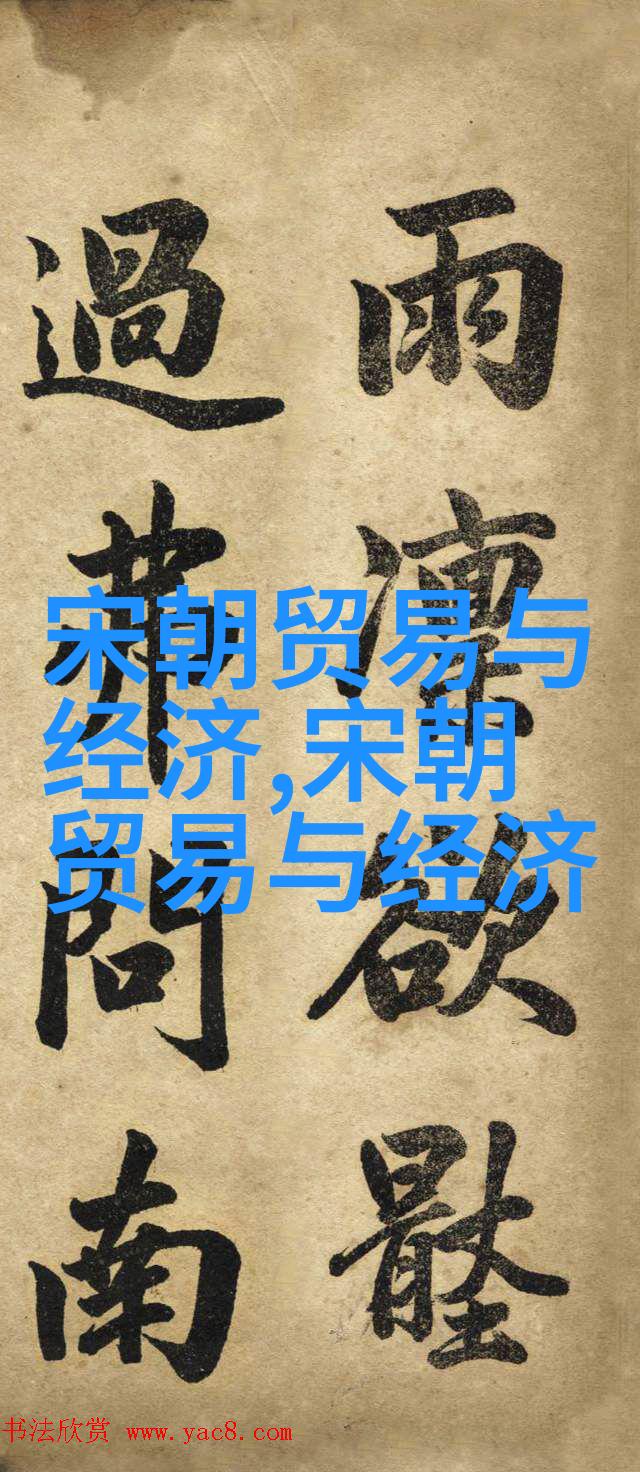 雨凜欲
過問南
宋朝贸易与
经济,宋朝
贸易与经济
书法欣赏 www.yac8.com